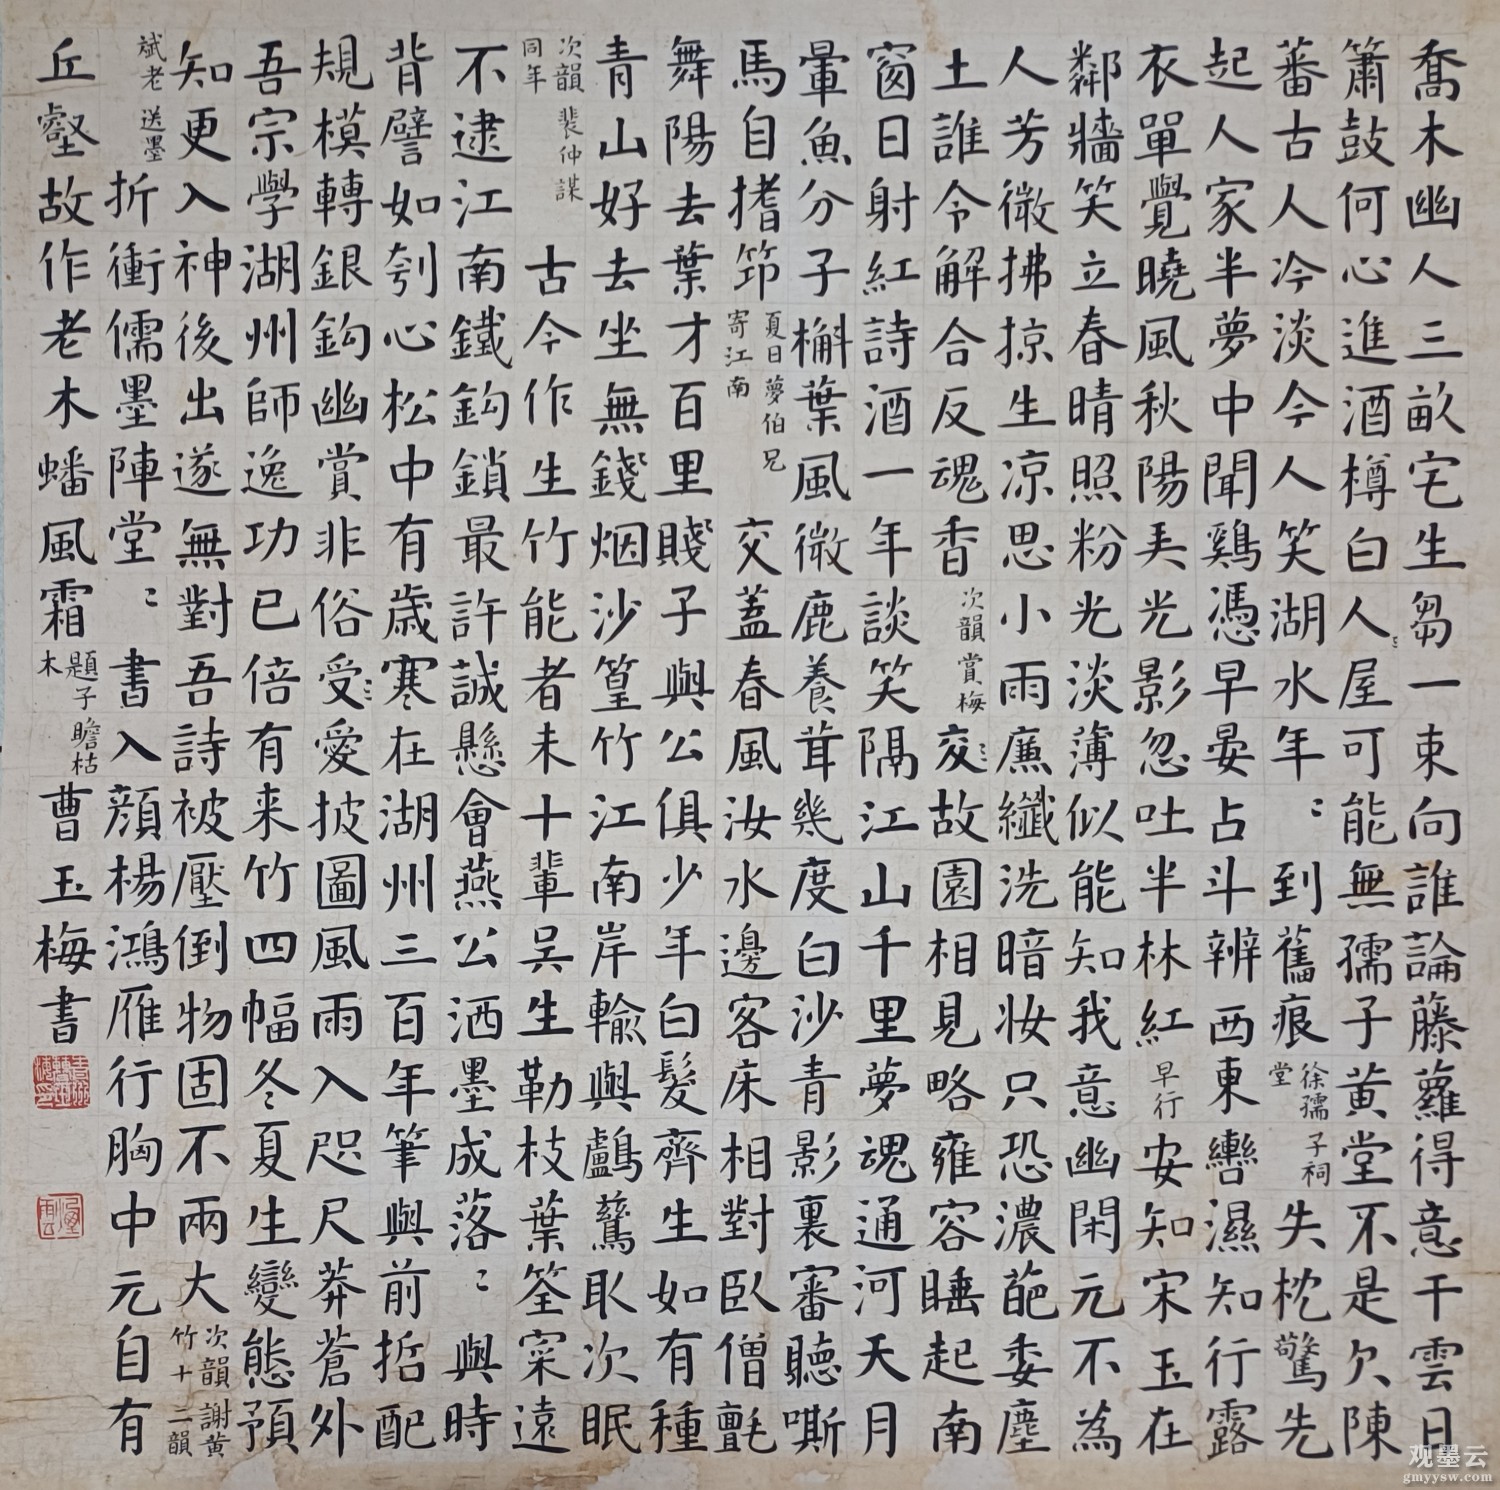 喬木幽人三畝宅生芻一束向誰論藤蘿得意干雲日
簫鼓何心進酒樽白人屋可能無孺子黃堂不是欠陳
蕃古人冷淡今人笑湖水年〻到舊痕徐孺子祠堂失枕驚先
起人家半夢中聞鷄憑早晏占斗辨西東轡濕知行露
衣單覺曉風秋陽弄光影忽吐半林紅早行安知宋玉在
鄰牆笑立春晴照粉光淡薄似能知我意幽閑元不為
人芳微拂掠生凉思小雨廉纖洗暗妝只恐濃葩委塵
土誰令解合反魂香次韻賞梅交故園相見略雍容睡起南
窗日射紅詩酒一年談笑隔江山千里夢魂通河天月
暈魚分子槲葉風微鹿養茸幾度白沙青影裏審聽嘶
馬自搘筇夏日夢伯兄寄江南交蓋春風汝水邊客床相對臥僧氈
舞陽去葉才百里賤子與公俱少年白髮齊生如有種
青山好去坐無錢烟沙篁竹江南岸輸與鸕鶿取次眠
次韻裴仲謀同年古今作生竹能者未十輩吳生勒枝葉筌寀遠
不逮江南鐵鈎鎖最許誠懸會燕公洒墨成落〻與時
背譬如刳心松中有歲寒在湖州三百年筆與前哲配
規模轉銀鈎幽賞非俗受愛披圖風雨入咫尺莽蒼外
吾宗學湖州師逸功已倍有来竹四幅冬夏生變態預
知更入神後出遂無對吾詩被壓倒物固不兩大次韻謝黃竹十二韻
斌老送墨折衝儒墨陣堂〻書入顏楊鴻雁行胸中元自有
丘壑故作老木蟠風霜題子瞻枯木曹玉梅書
观墨云
gmyysw.com